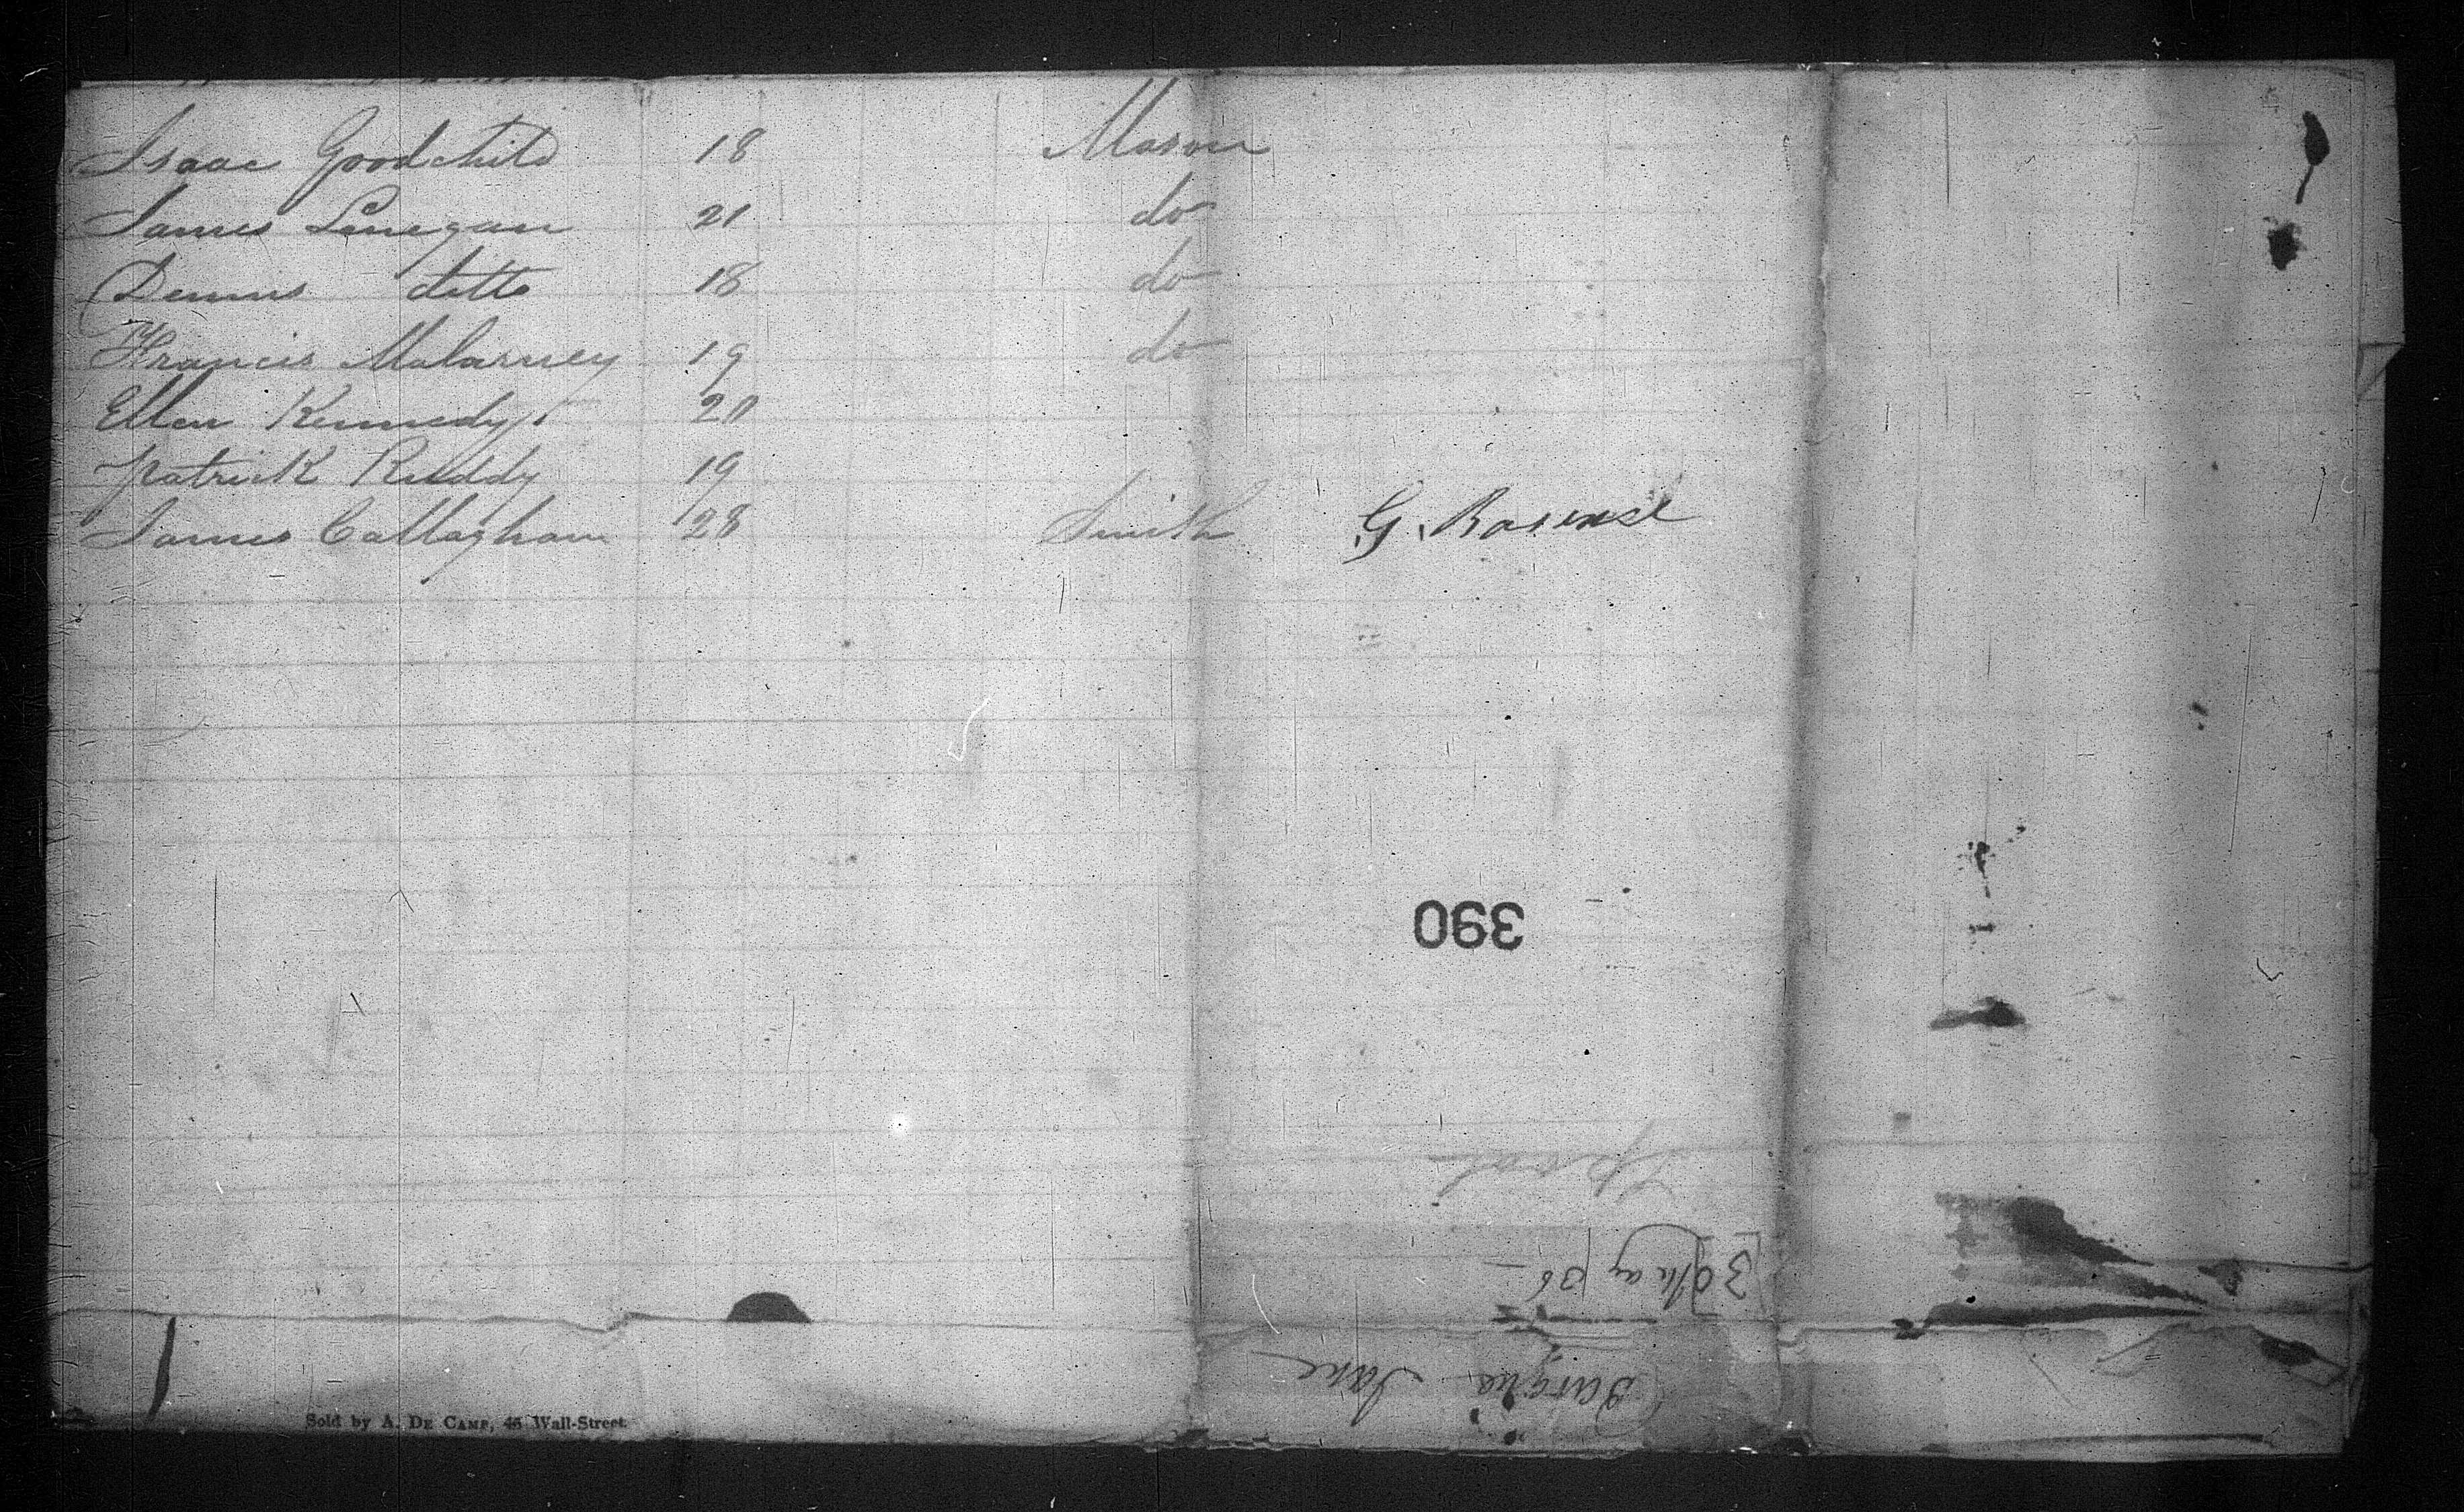 Isaac Goodchild 18 Mason
James Linegan 21 do
Dennis ditto 18 do
Francis Malarney 19 do
Ellen Kennedy 20
Patrick Ruddy 19
James Callaghan 28 Smith G.
390
Lpool
30 May 36
Barque Jane
Sold by A. De Camp, 45 Wall-Street.